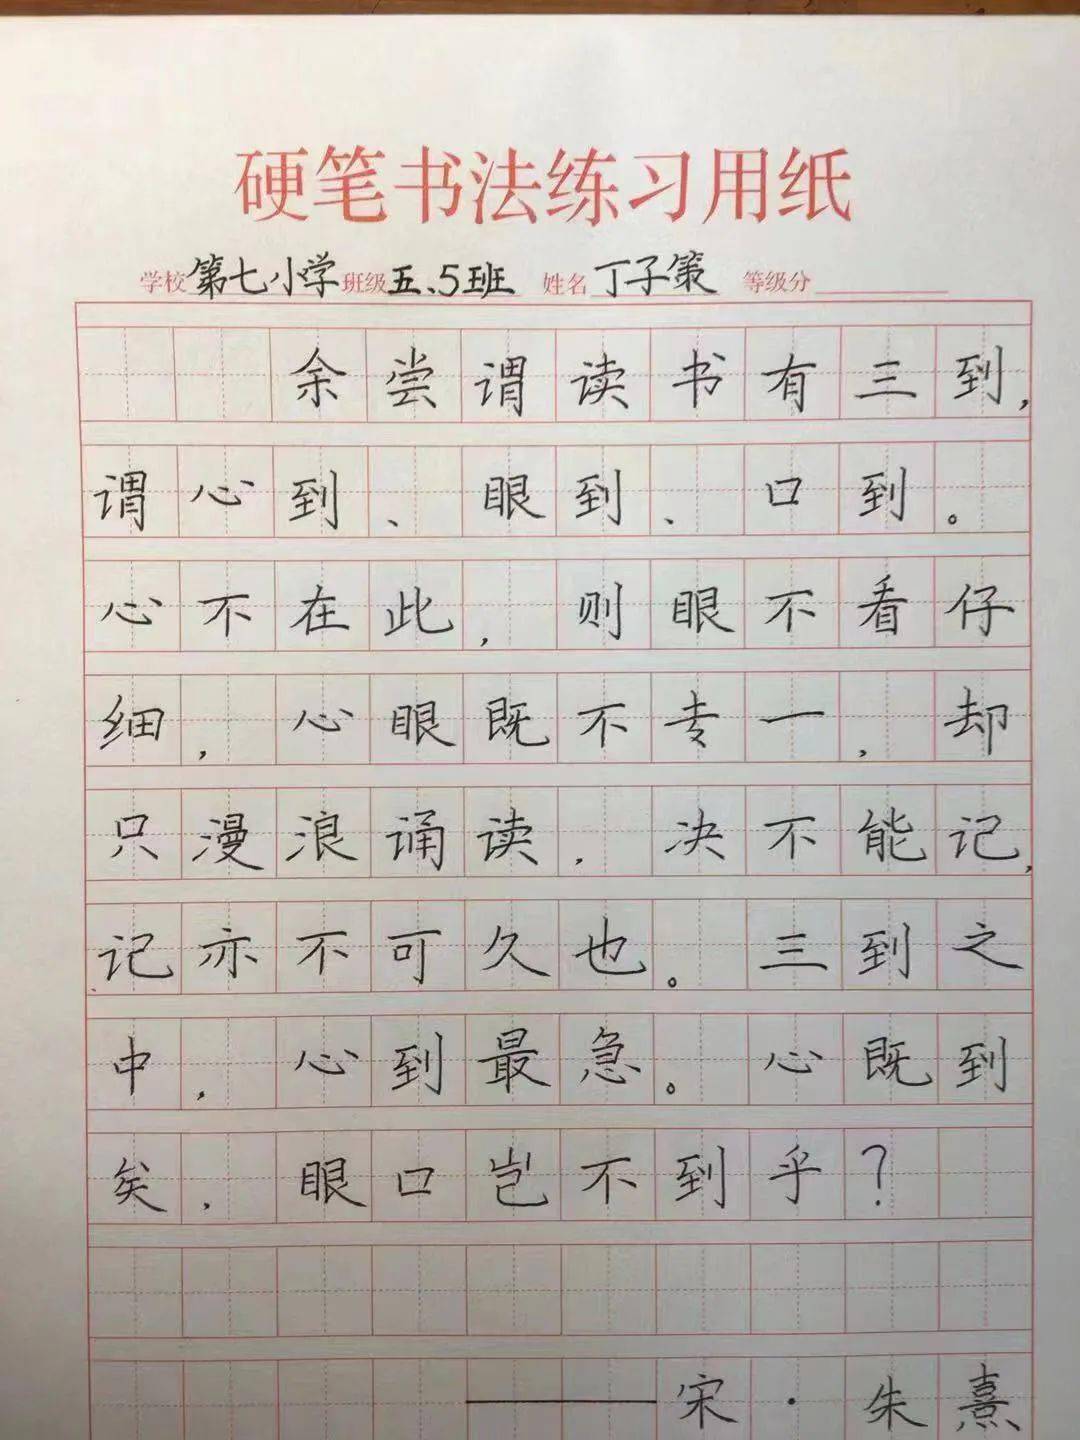 硬笔书法练习用纸
学校 第七小学 班级 五.5班 姓名 丁子策 等级分
余尝谓读书有三到,
谓心到、眼到、口到。
心不在此,则眼不看仔
细,心眼既不专一,却
只漫浪诵读,决不能记,
记亦不可久也。三到之
中,心到最急。心既到
矣,眼口岂不到乎?
——宋·朱熹